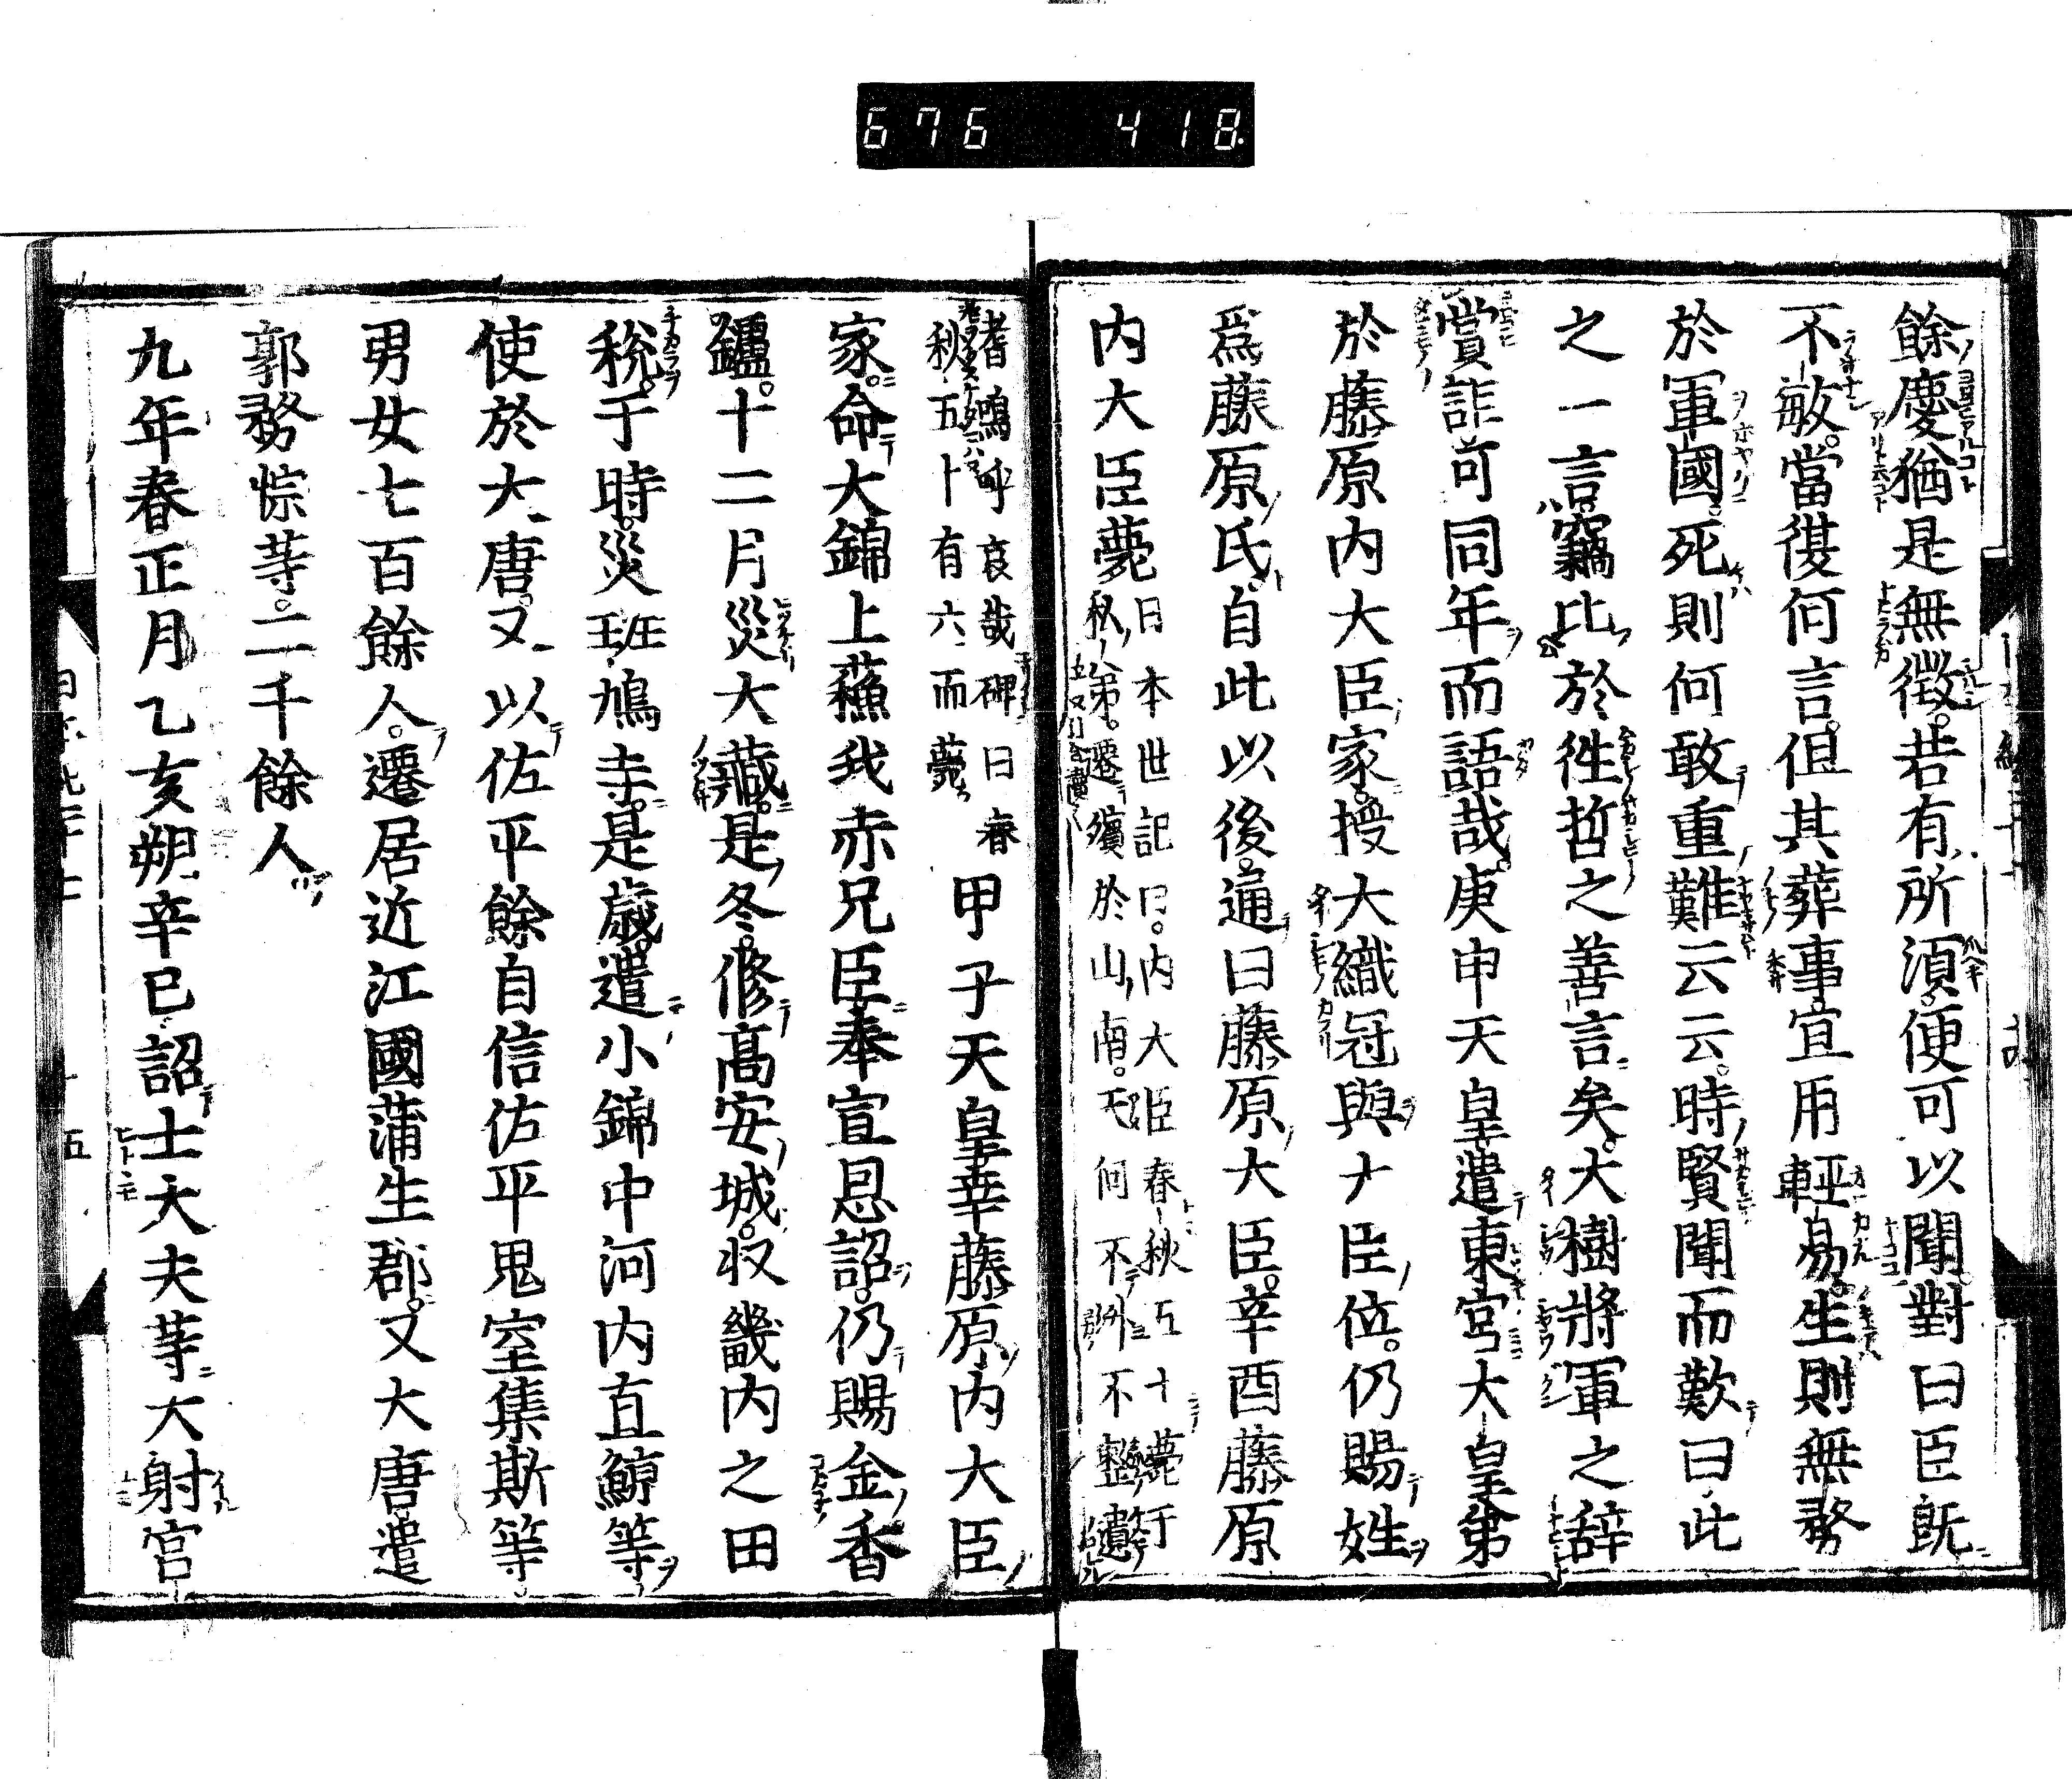 676 418
餘慶猶是無徴若有所須便可以聞對曰臣既
不敏當復何言但其葬事宜用輕易生則無務
於軍國死則何敢重難云云時賢聞而歎曰此
之一言竊比於徃哲之善言矣大樹將軍之辞
賞詎可同年而語哉庚申天皇遣東宮大皇弟
於藤原内大臣家授大織冠與大臣位仍賜姓
爲藤原氏自此以後通曰藤原大臣辛酉藤原
内大臣薨
日本世記曰内大臣春秋五十薨于
私弟遷殯於山南天何不淑不憖遺
耆嗚呼哀哉碑曰春
秋五十有六而薨
甲子天皇幸藤原内大臣
家命大錦上蘓我赤兄臣奉宣恩詔仍賜金香
鑪十二月災大藏是冬修髙安城収畿内之田
税于時災斑鳩寺是歳遣小錦中河内直鯨等
使於大唐又以佐平餘自信佐平鬼室集斯等
男女七百餘人遷居近江國蒲生郡又大唐遣
郭務悰䓁二千餘人
九年春正月乙亥朔辛巳詔士大夫䓁大射宮